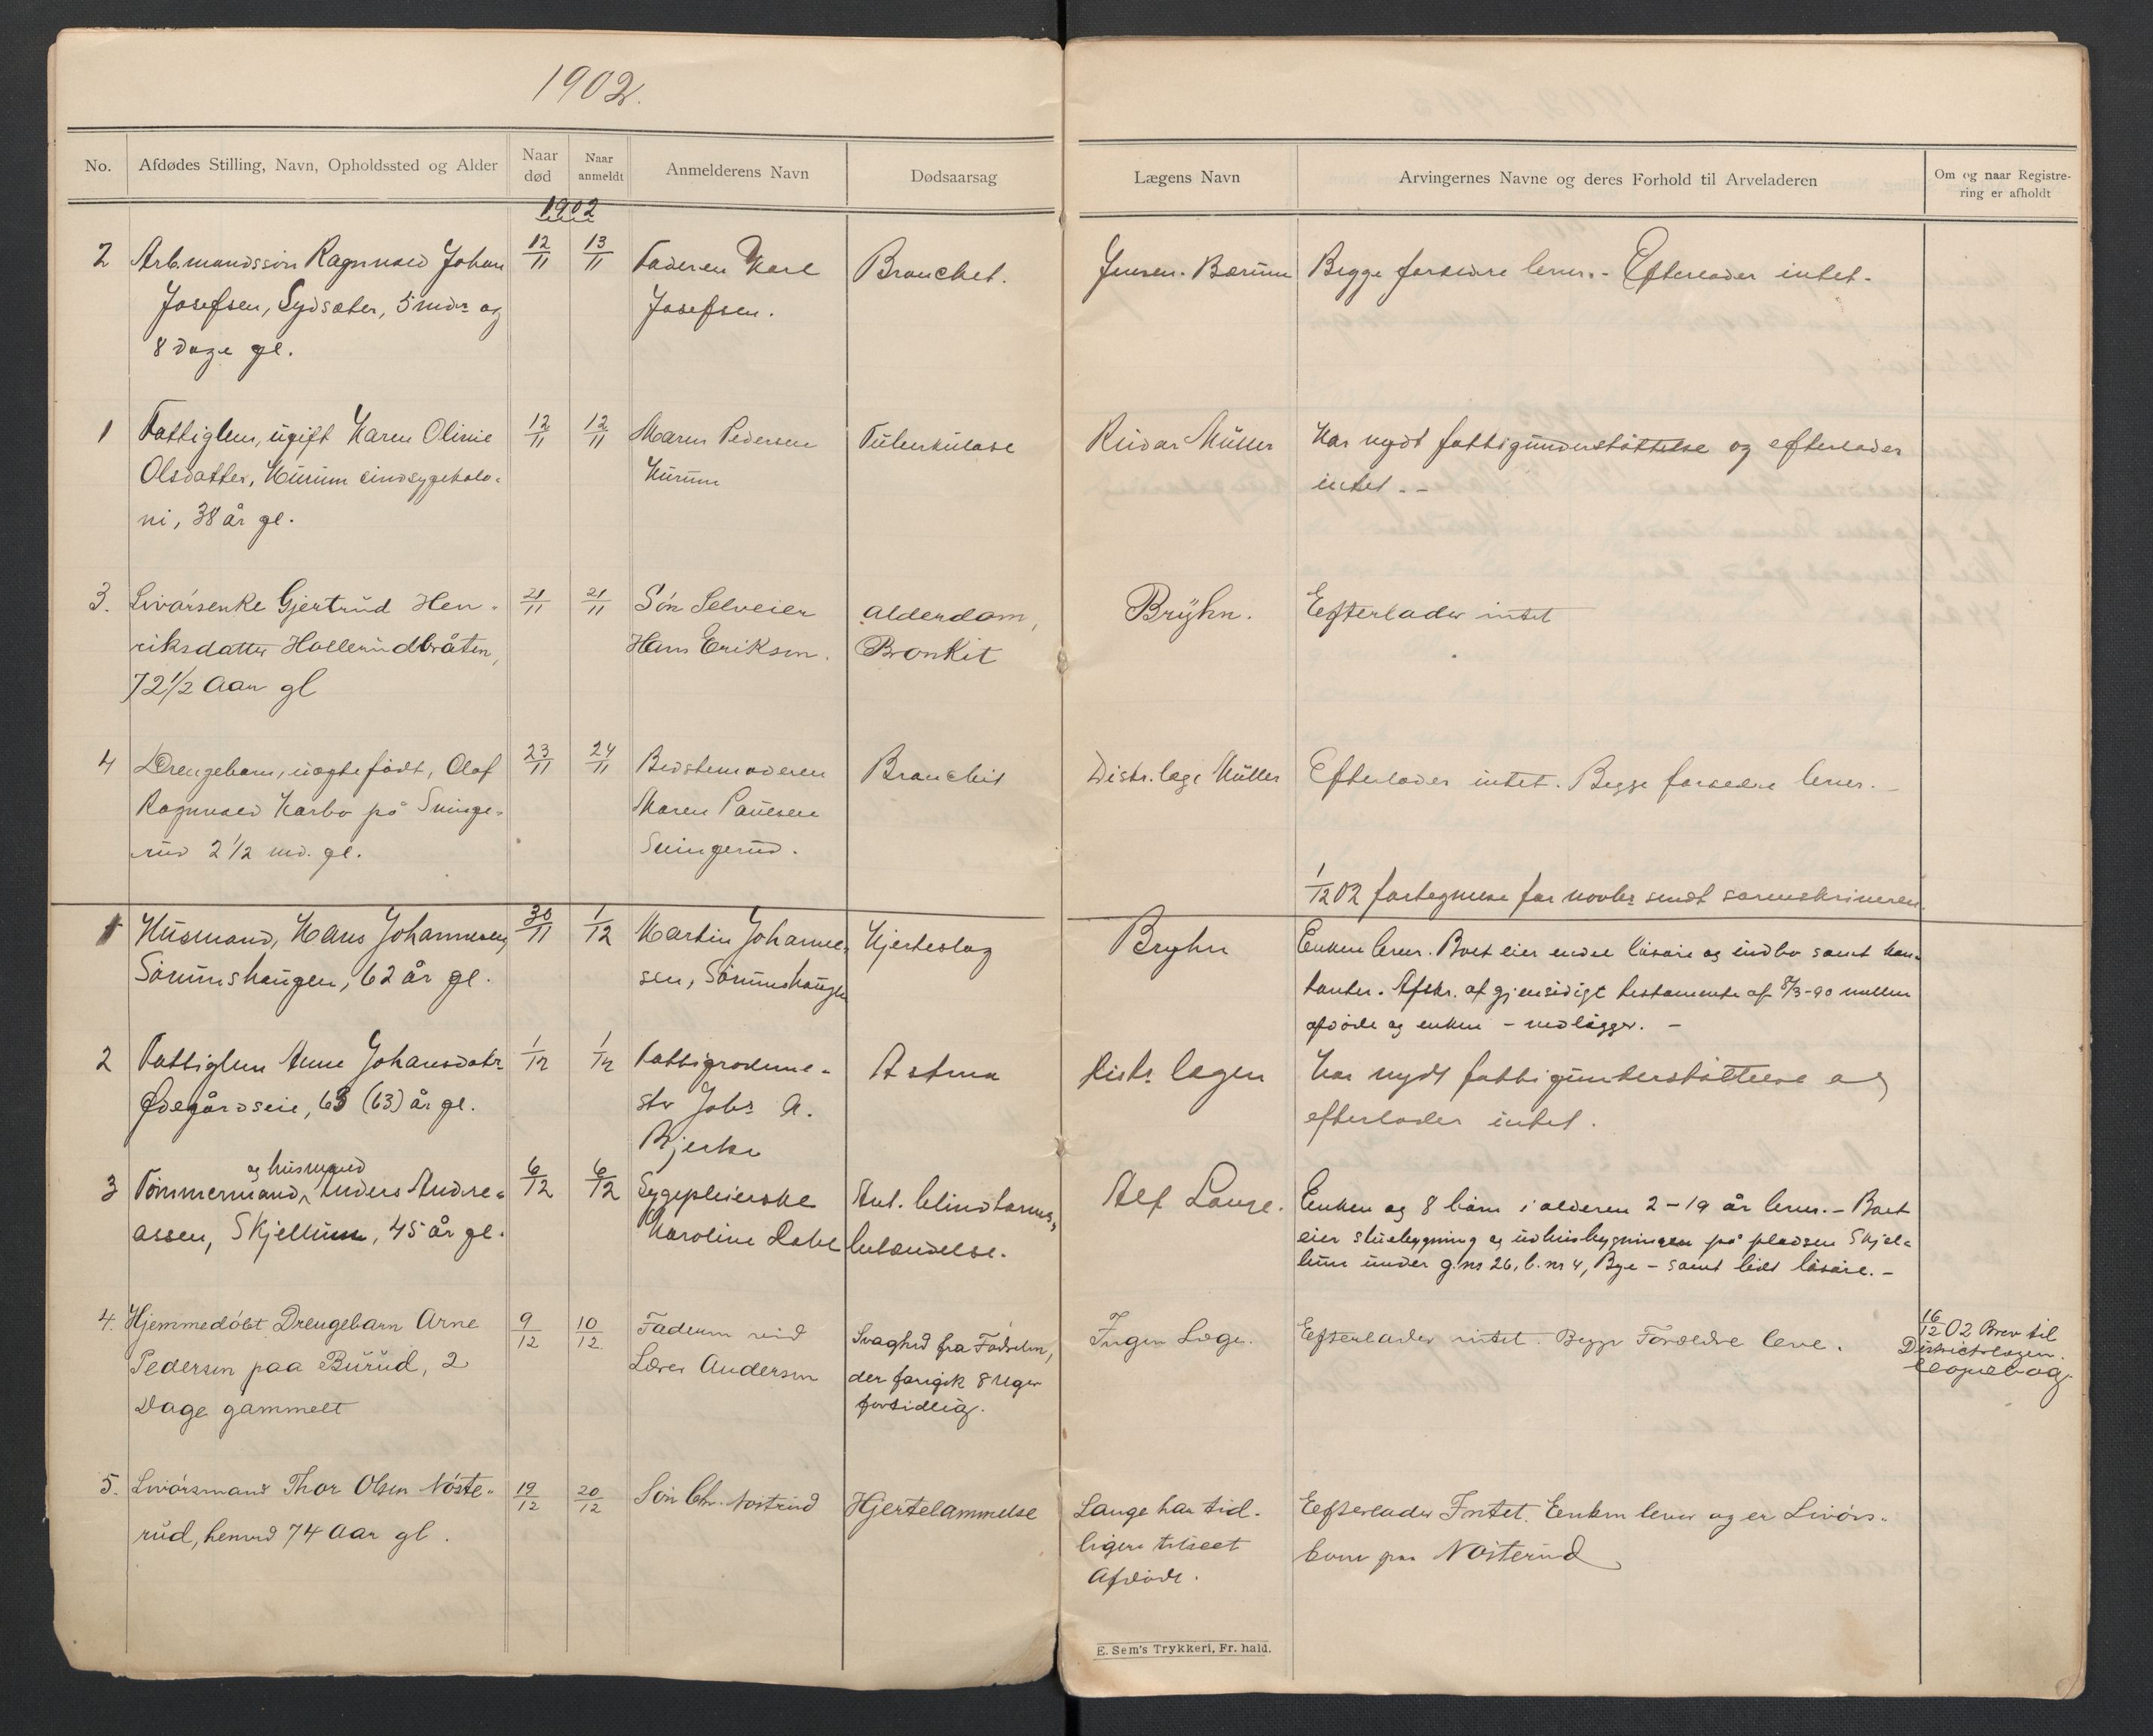 1902.
No.
Afdødes Stilling, Navn, Opholdssted og Alder
Naar død
Naar anmeldt
Anmelderens Navn
Dødsaarsag
Lægens Navn
Arvingernes Navne og deres Forhold til Arveladeren
Om og naar Registre-
ring er afholdt
1902
2 Arb.mandssön Ragnvald Johan 12/11 13/11 Faderen Karl Bronchit. Jensen. Bærum Begge forældre lever. - Efterlader intet -
Josefsen, Sydsæter, 5 mdr og Josefsen.
8 dage gl.
1 Fattiglem, ugift Karen Oline 12/11 12/11 Maren Pedersen Tuberkulose Reidar Müller Har nydt fattigunderstöttelse og efterlader
Olsdatter, Hurum sindsygekolo- Hurum intet. -
ni, 38 år gl.
3. Livörsenke Gjertrud Hen- 21/11 21/11 Sön Selveier Alderdom, Brÿhn. Efterlader intet
riksdatter Hollerudbråten, Hans Eriksen. Bronkit
72 1/2 Aar gl
4 Drengebarn, uægte födt, Olof 23/11 24/11 Bedstemoderen Bronchit Distr.læge Müller Efterlader intet. Begge forældre lever. -
Ragnvald Karbo på Svinge- Maren Paulsen
rud 2 1/2 md. gl. Svingerud.
1/12 02 fortegnelse for novbr sendt sorenskriveren
1 Husmand, Hans Johannesen, 30/11 1/12 Martin Johanne- Hjerteslag Bryhn Enken lever. Boet eier endel lösöre og indbo samt kon-
Sörumshaugen, 62 år gl. sen, Sörumshaugen tanter. Afskr. af gjensidigt testamente af 8/3-90 mellem
afdöde og enken - vedlägger. -
2 Fattiglem Anne Johansdatr 1/12 1/12 Fattigrodeme- Astma Distr.lægen Har nydt fattigunderstöttelse og
Ødegårdseie, 63 (63) år gl. ster Johs A. efterlader intet.
Bjerke
og husmand
3 Tömmermand, Anders Andre- 6/12 6/12 Sygepleierske Ant. blindtarms- Alf Lange. Enken og 8 börn i alderen 2-19 år lever. - Boet
assen, Skjellum, 45 år gl. Karoline Dahl betændelse. eier stuebygning og udhusbygningen på pladsen Skjel-
lum under g.nr 26, b.nr 4, Bye - samt lidt lösöre. -
4. Hjemmedöbt Drengebarn Arne 9/12 10/12 Faderen ved Svaghed fra Födselen, Ingen Læge. Efterlader intet. Begge Forældre leve. 16/12 02 Brev til
Pedersen paa Burud, 2 Lærer Andersen der foregik 8 Uger Districtslægen.
Dage gammelt fortidlig. copiebog.
5. Livörsmand Thor Olsen Nöste- 19/12 20/12 Sön Chr. Nöstrud Hjertelammelse Lange har tid- Efterlader Intet. Enken lever og er Livörs-
rud, henved 74 Aar gl. ligere tilseet kone paa Nösterud
Afdöde.
E. Sem's Trykkeri, Fr. hald.